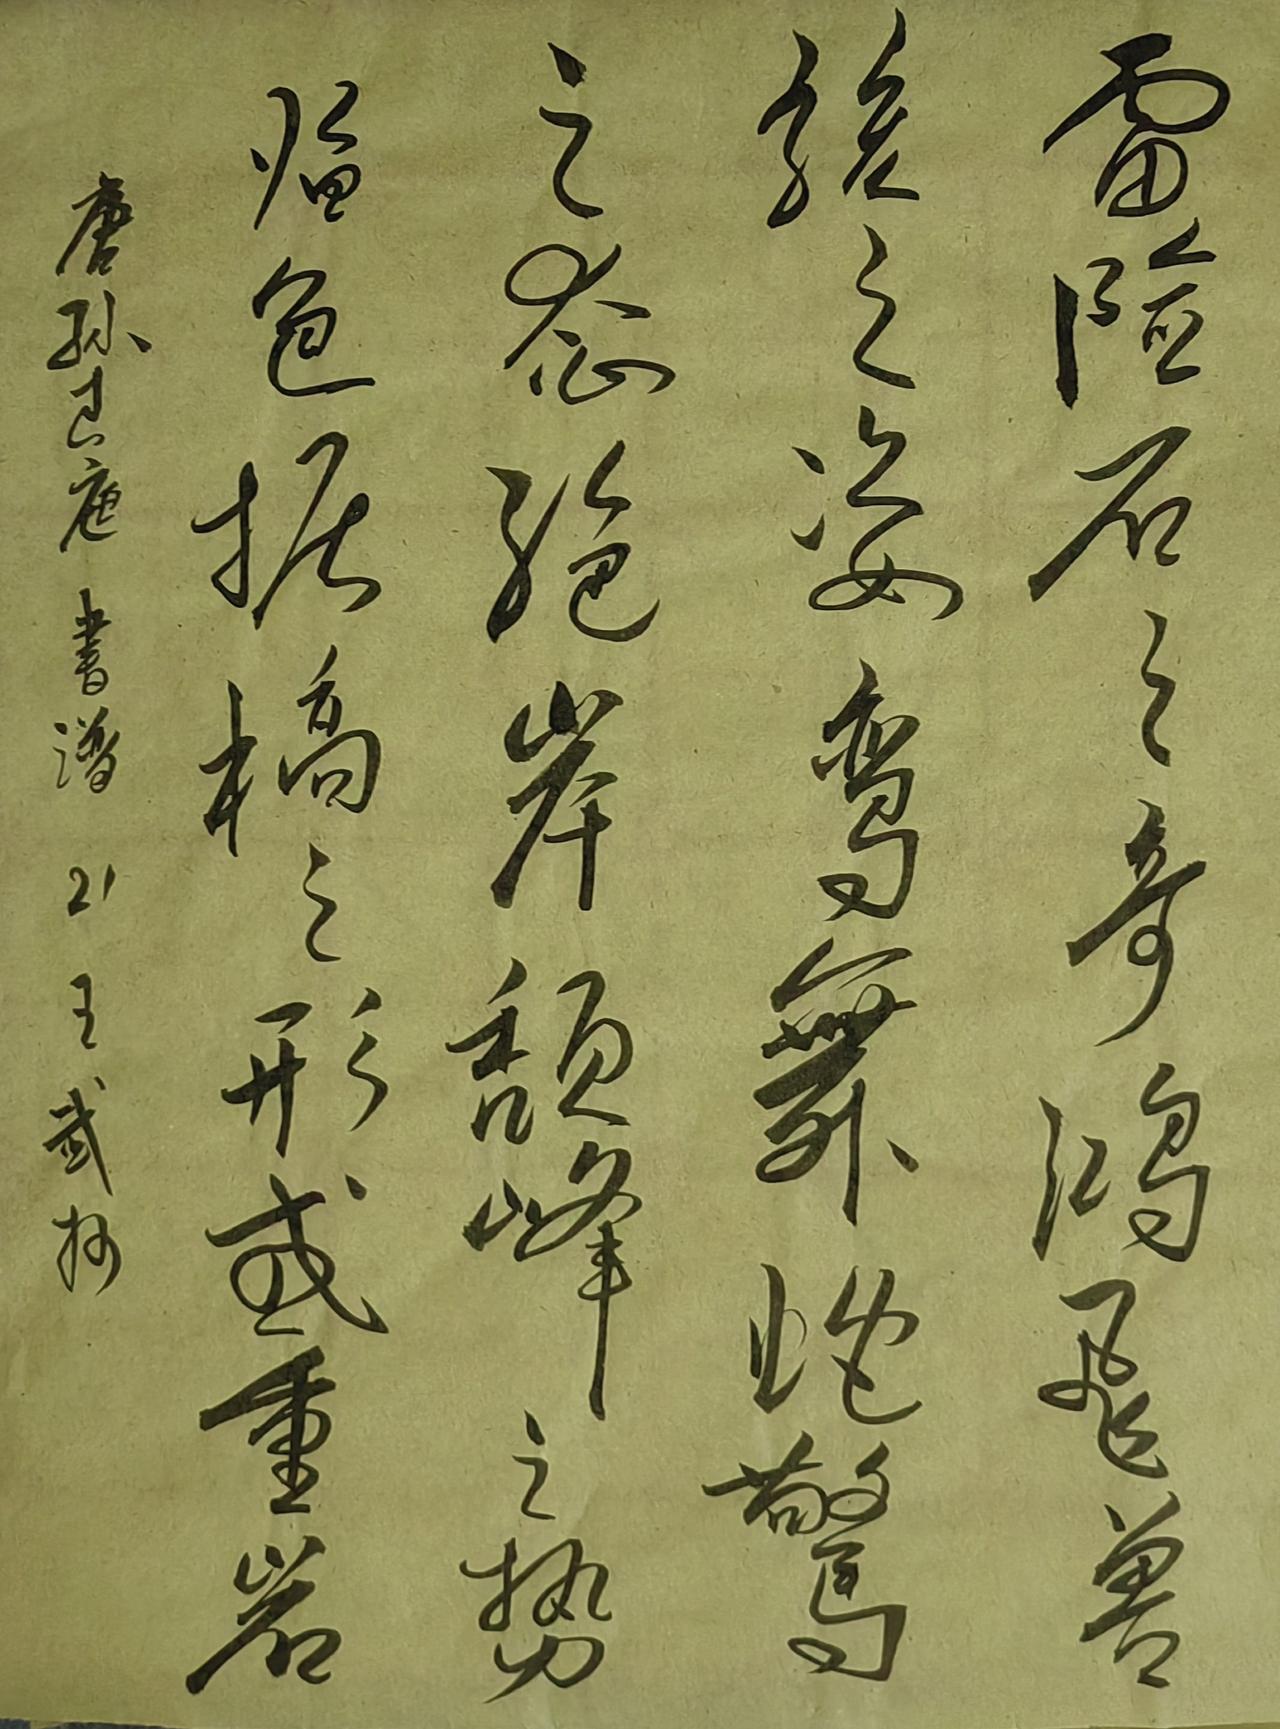 雷险石之奇鸿飞兽
骇之姿鸾舞蛇驚
之态绝岸颓峰之势
临危据槁之形或重若
唐孙过庭書谱 21 王